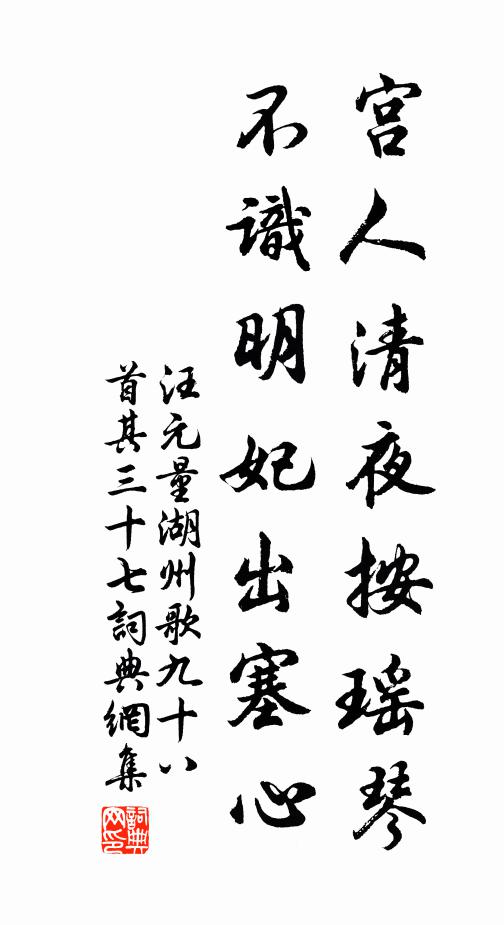 宫人清夜按瑶琴
不識明妃出塞心
汪元量湖州歌九十八
首其三十七詞典網集
詞典
网印